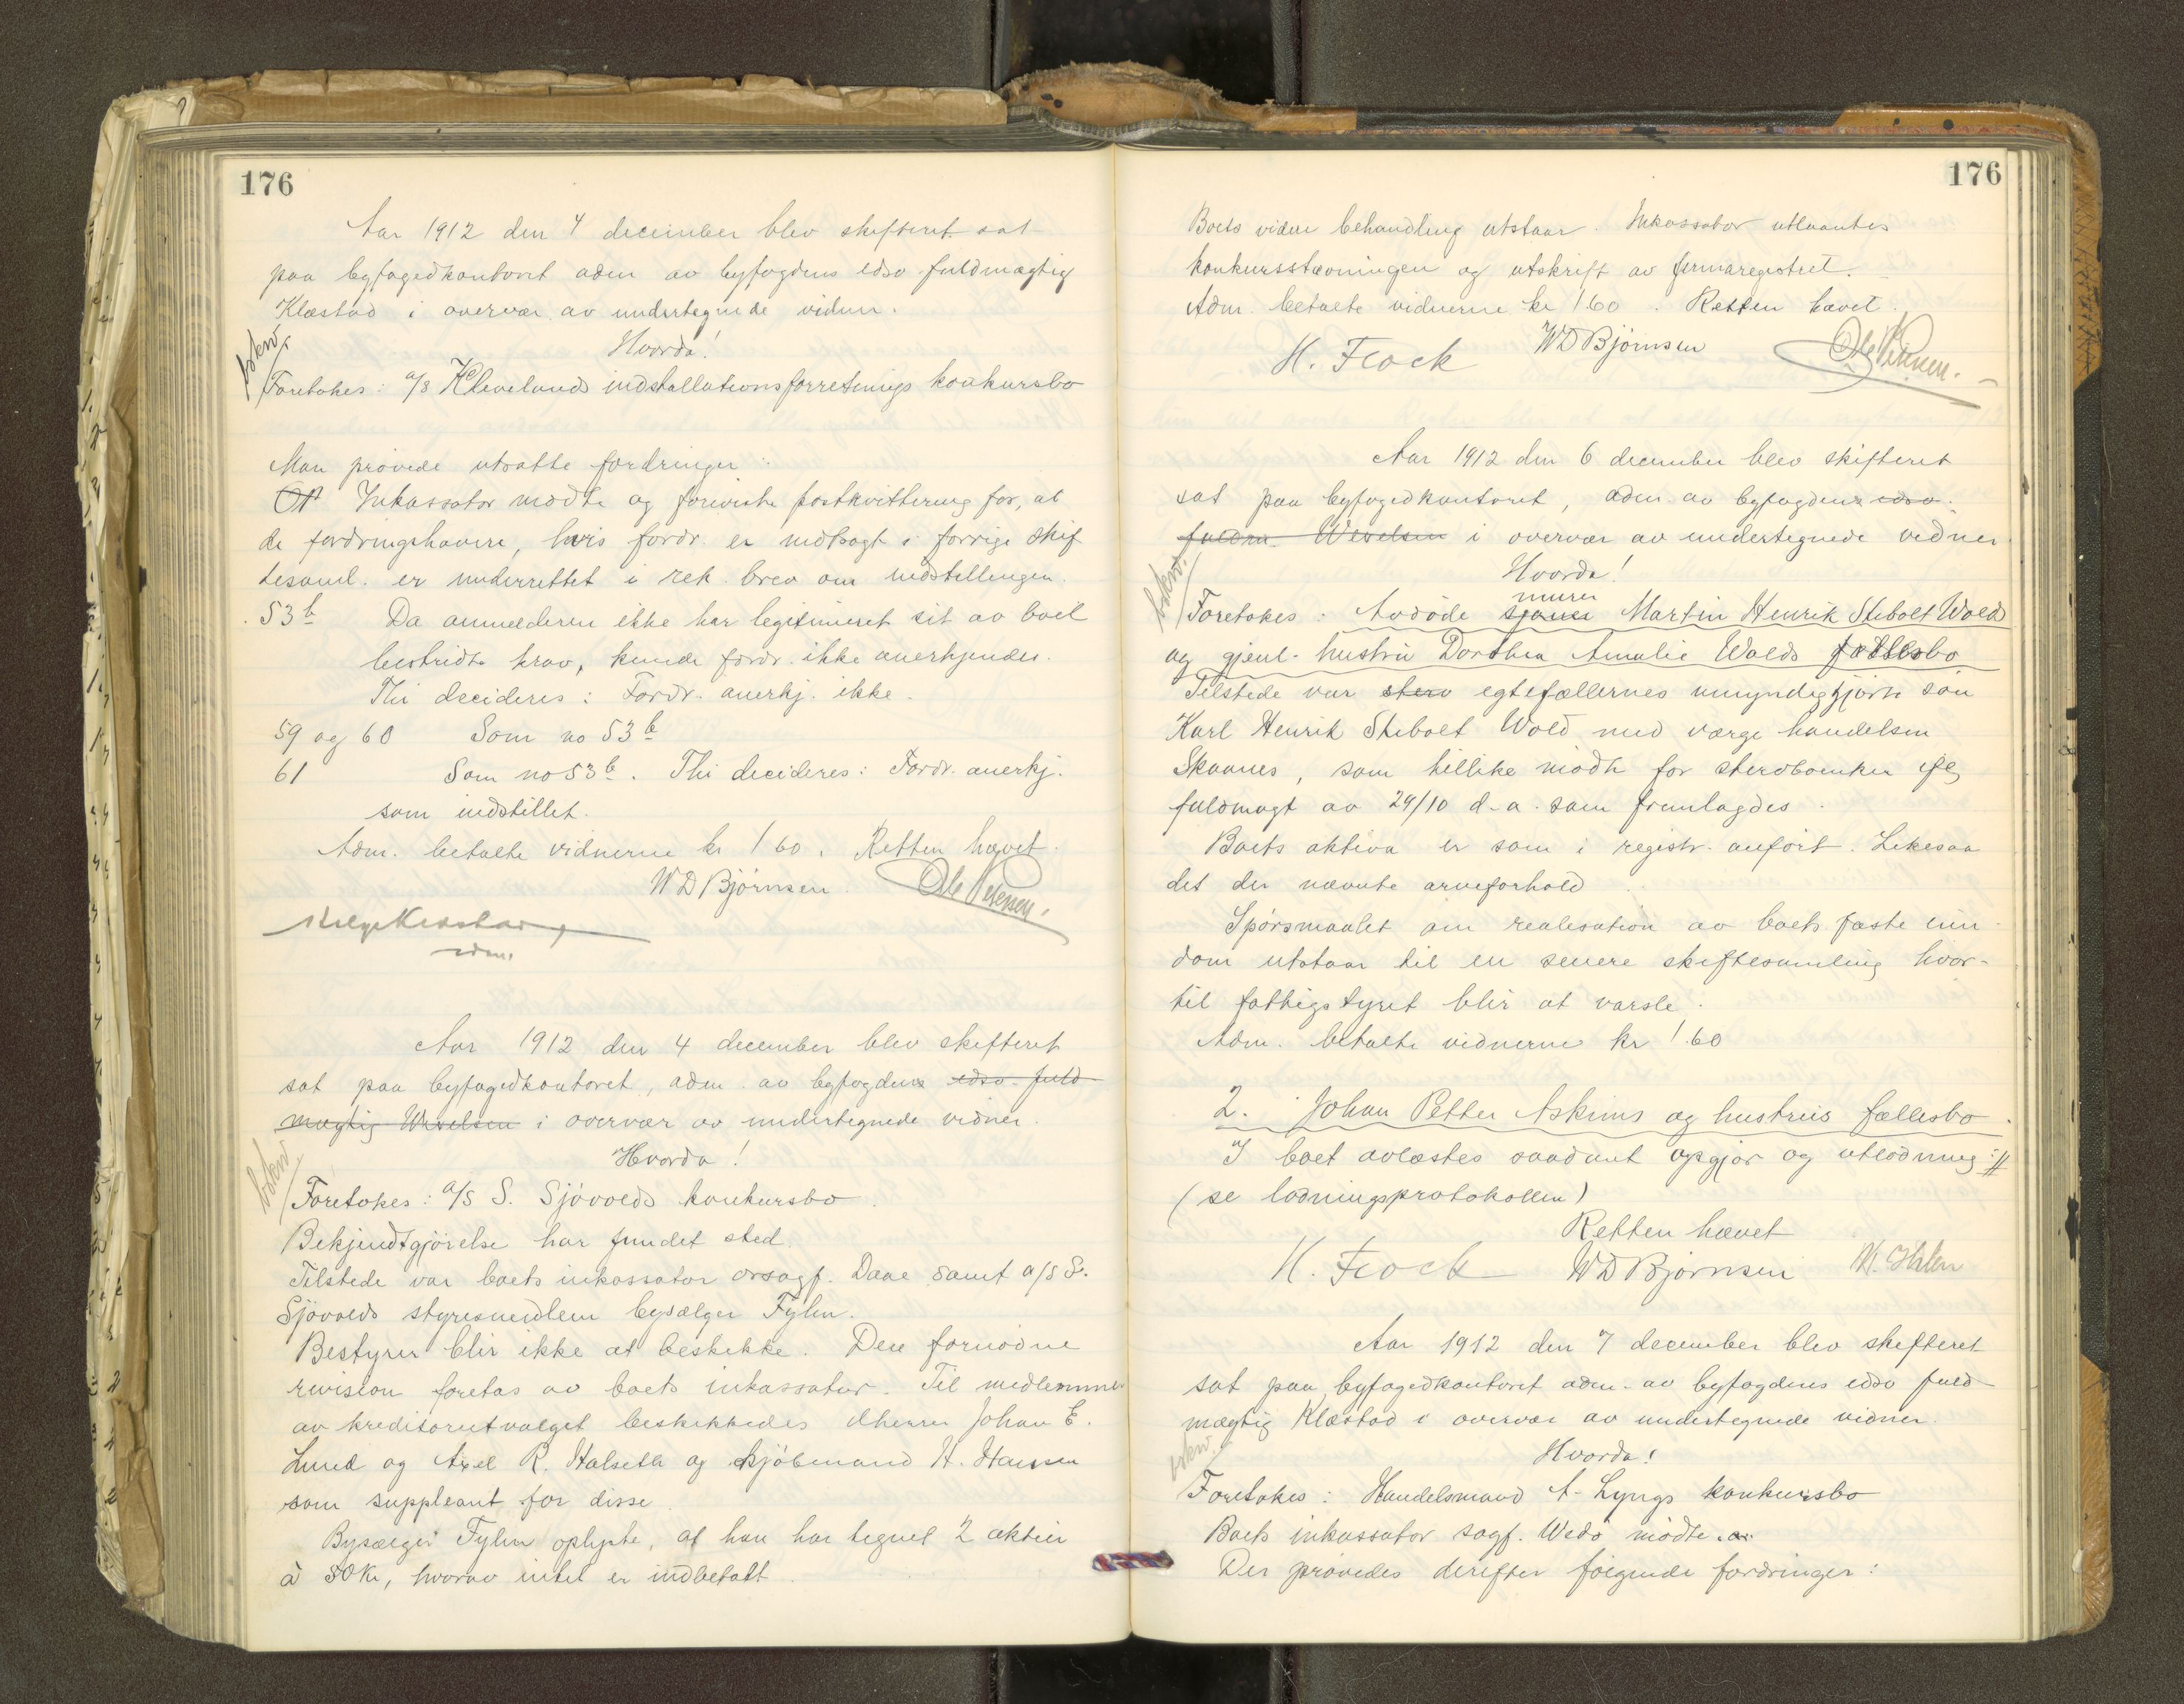 176
Aar 1912 den 4 december blev skifteret sat
paa byfogedkontoret adm av byfogdens edsv. fuldmægtig
Klæstad i overvær av undertegnede vidner.
Hvorda!
bokført
Foretokes: a/s Klevelands indstallationsforretnings konkursbo
Man prøvede utsatte fordringer:
Inkassator mødte og foreviste postkvittering for, at
de fordringshavere, hvis fordr. er motsagt i forrige skif
tesaml. er underrettet i rek. brev om indstillingen.
53b Da anmelderen ikke har legitimeret sit av boet
bestridte krav, kunde fordr. ikke anerkjendes.
Thi decideres: Fordr. anerkj. ikke.
59 og 60 Som no 53b
61 Som no 53b. Thi decideres: Fordr. anerkj.
som indstillet.
Adm. betalte vidnerne kr 1.60. Retten hævet.
WD Bjørnsen. Ole Petersen.
Helge Klæstad
edsv.
Aar 1912 den 4 december blev skifteret
sat paa byfogedkontoret, adm. av byfogden edsv. fuld
mægtig Wevelsen i overvær av undertegnede vidner.
Hvorda!
Foretokes: a/s S. Sjøvolds konkursbo.
Bekjendtgjørelse har fundet sted.
Tilstede var boets inkassator orsagf. Daae samt a/s S.
Sjøvolds styresmedlem bysælger Fylm.
Bestyrer blir ikke at beskikke. Den fornødne
revision foretas av boets inkassator. Til medlemmer
av kreditorutvalget beskikkedes dherrer Johan E.
Lund og Axel R. Halseth og kjøbmand H. Hansen
som suppleant for disse.
Bysælger Fylm oplyste, at han har tegnet 2 aktier
à 50 kr, hvorav intet er indbetalt.
176
Boets videre behandling utstaar. Inkassator utlaantes
konkursstævningen og utskrift av firmaregistret.
Adm. betalte vidnerne kr 1.60. Retten hævet.
H. Frock WD Bjørnsen Ole Petersen.
Aar 1912 den 6 december blev skifteret
sat paa byfogedkontoret, adm. av byfogden edsv.
fuldm. Wevelsen i overvær av undertegnede vidner
Hvorda!
murer
Foretokes: Avdøde Martin Henrik Stibolt Wold
og gjenl. hustru Dorthea Amalie Wolds fællesbo
Tilstede var egtefællernes umyndiggjorte søn
Karl Henrik Stibolt Wold med værge handelsm
Skaanes, som tillike mødte for sterdboenken ifg
fuldmagt av 29/10 d.a. som fremlagdes.
Boets aktiva er som i registr. anført. Likesaa
det der nævnte arveforhold.
Spørsmaalet om realisation av boets faste eien
dom utstaar til en senere skiftesamling hvor-
til fattigstyret blir at varsle.
Adm. betalte vidnerne kr 1.60
2. Johan Petter Askims og hustrus fællesbo.
I boet avlæstes saadant opgjør og utlodning://
(se lodningsprotokollen)
Retten hævet
H. Frock WD Bjørnsen
Aar 1912 den 7 december blev skifteret
sat paa byfogedkontoret adm. av byfogdens edsv fuld
mægtig Klæstad i overvær av undertegnede vidner.
Hvorda!
Foretokes: Handelsmand A. Lyngs konkursbo
Boets inkassator sagf. Wedø mødte.
Der prøvedes derefter følgende fordringer: